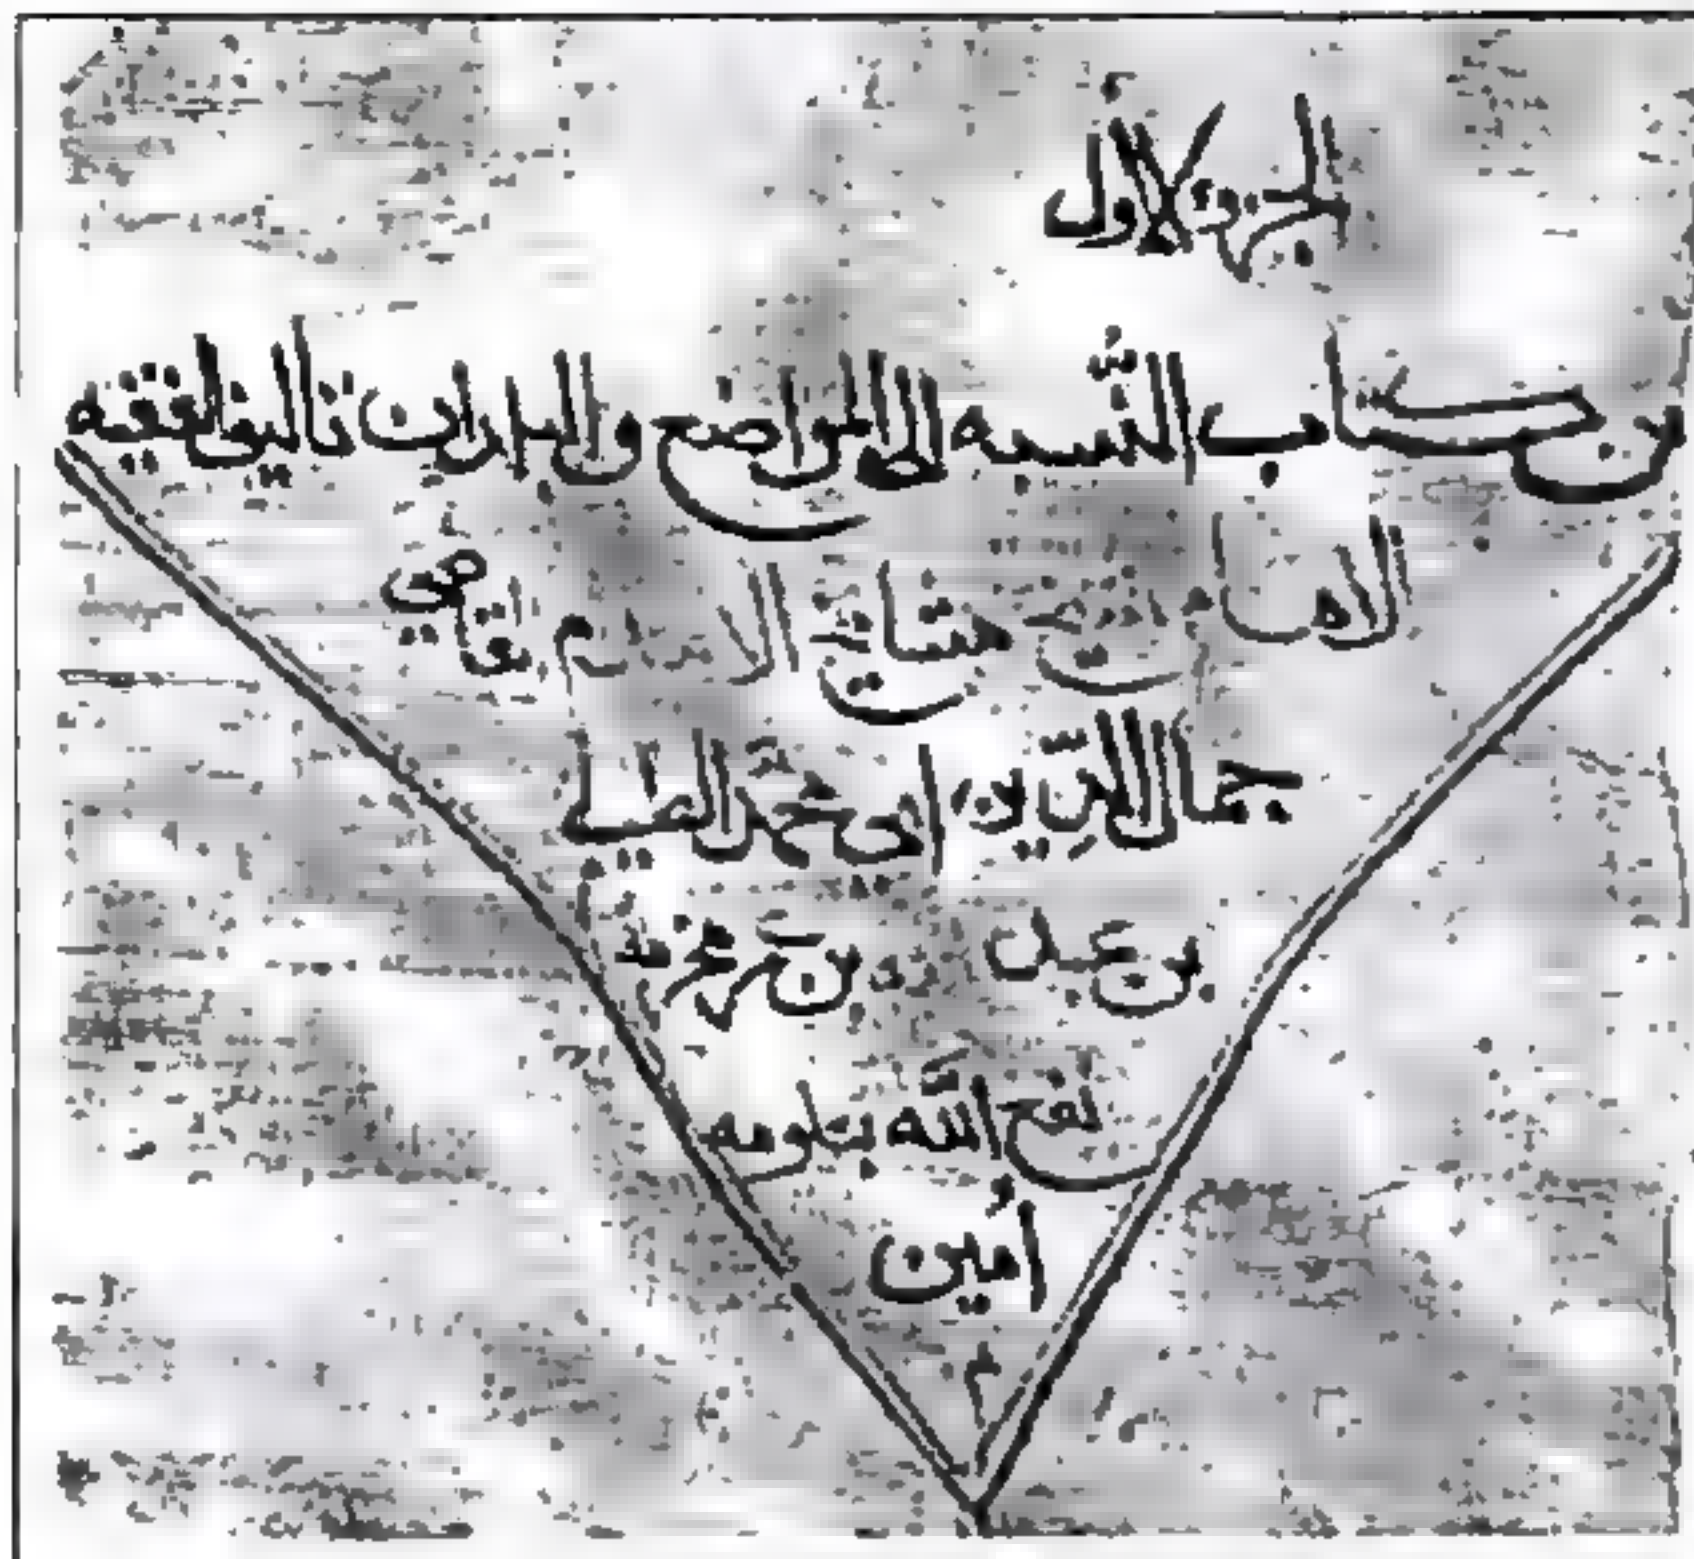 الجزء الاول
من كتاب النسبه الى المواضع والبلدان تاليف الفقيه
الامام شيخ مشايخ الاسلام القاضي
جمال الدين ابي محمد الطيب
بن عبد الله بن عمر مخرمة
نفع الله بعلومه
امين
م